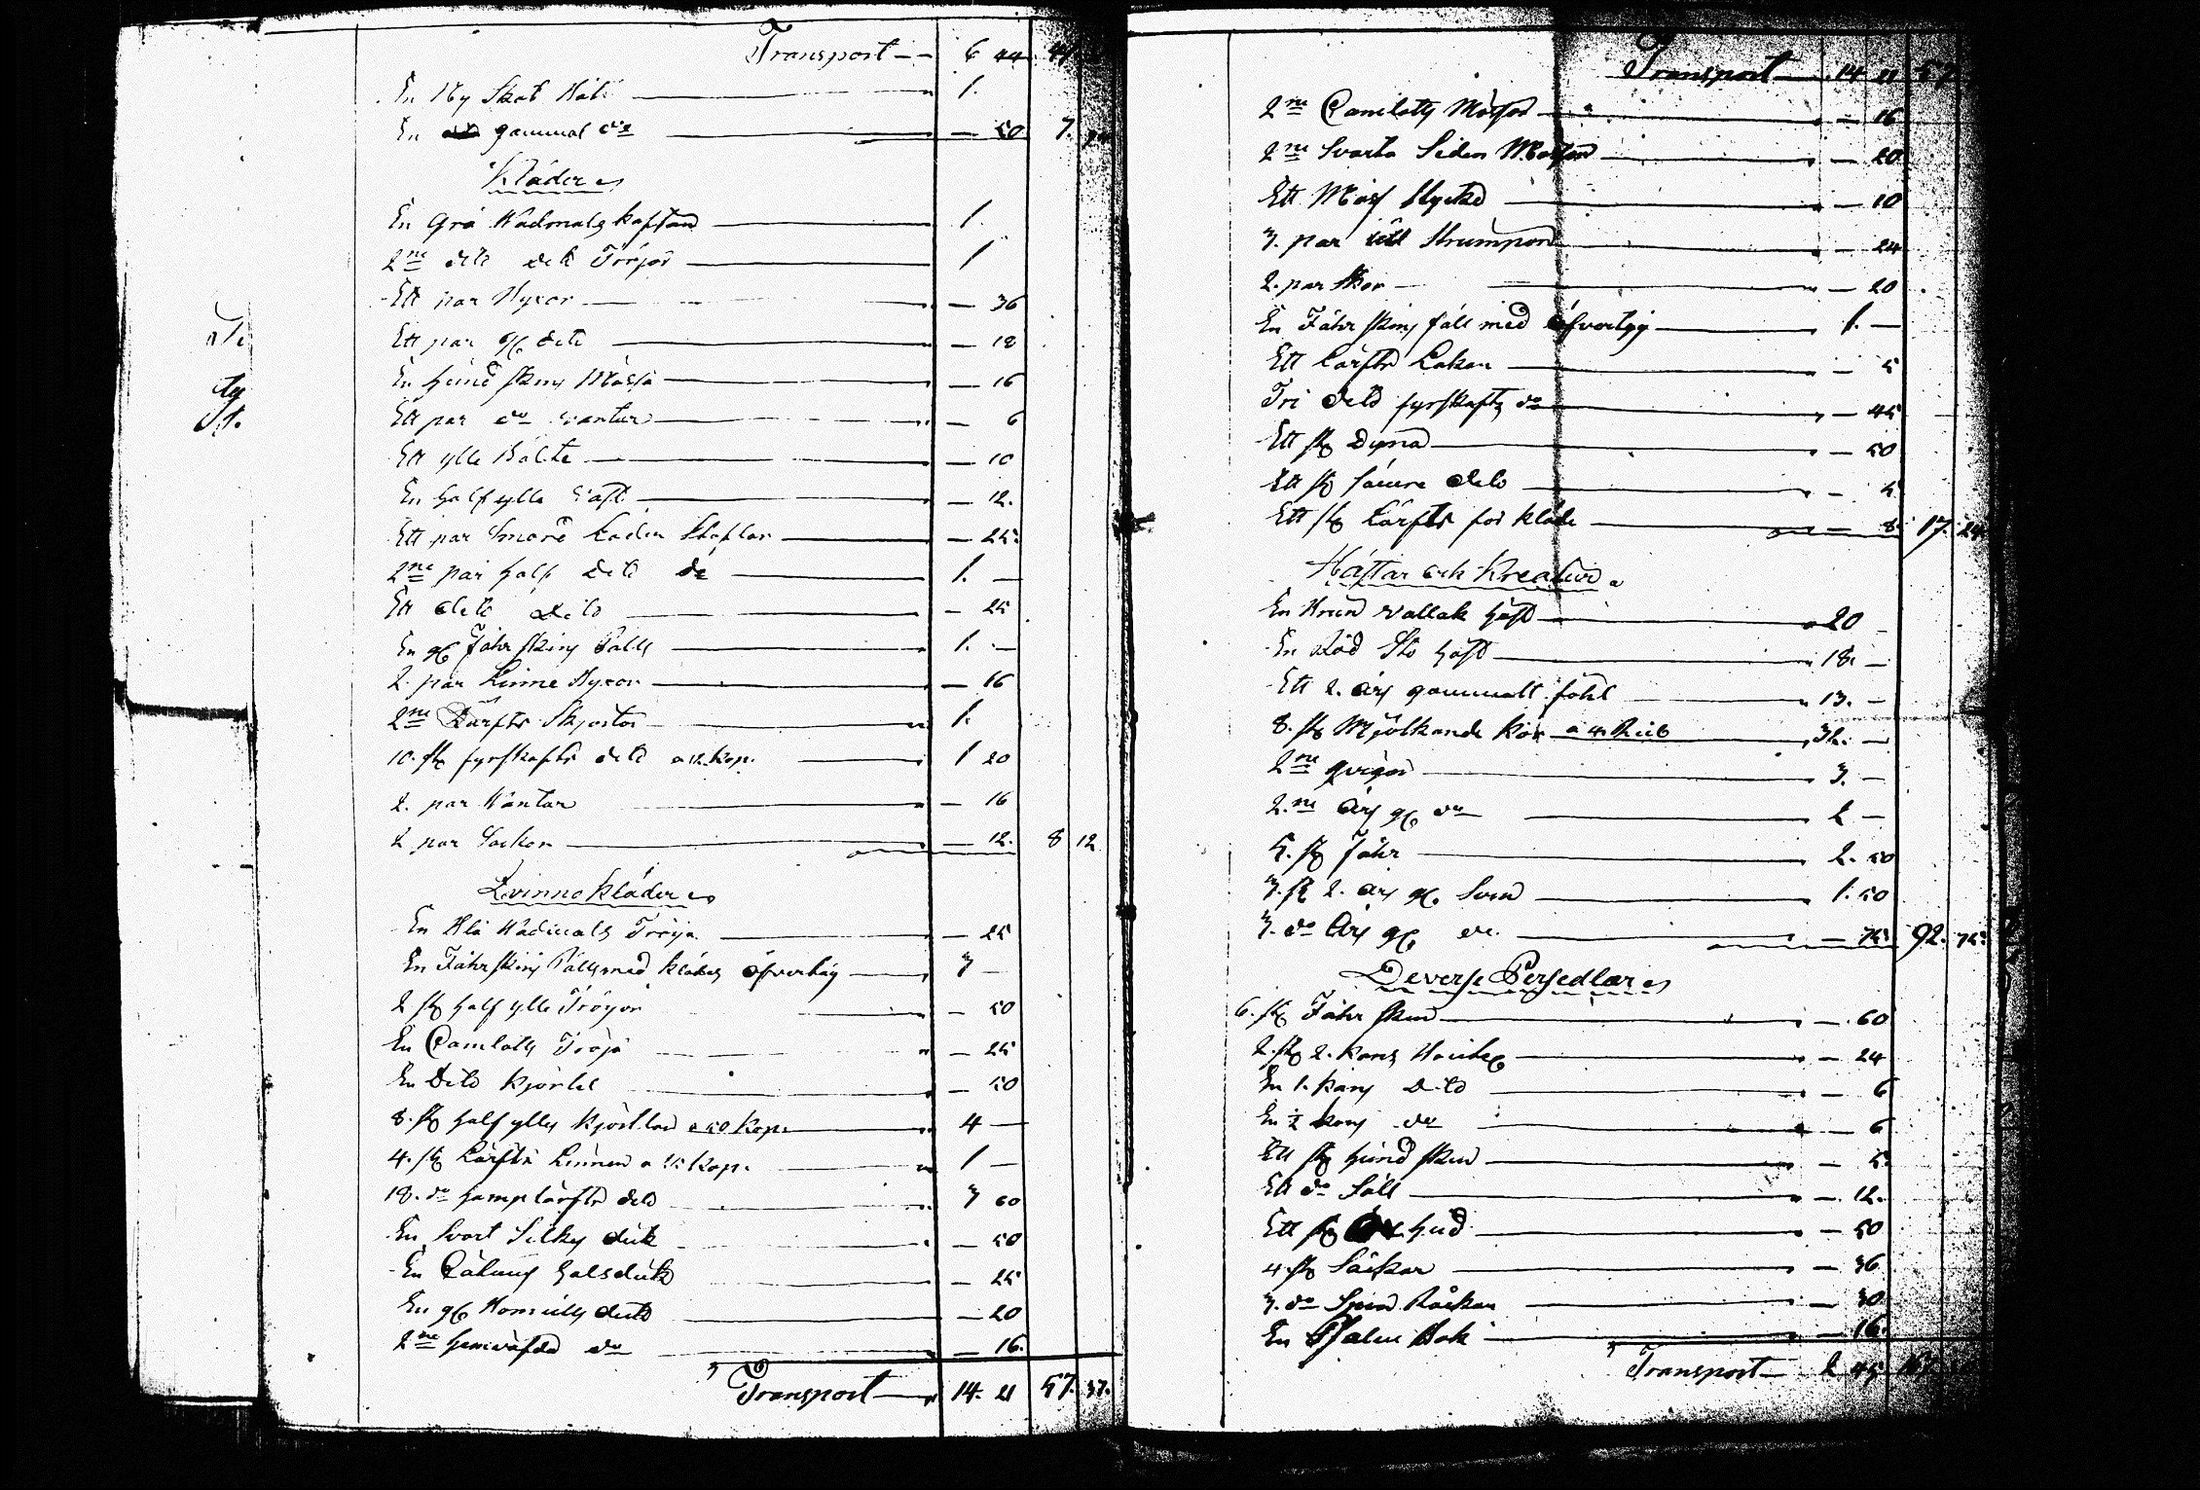 Transport 6 44 41
En Ny Skot Båt 1.
En gammal do — 50 7. 94
Kläder
En Grå Wadmals kaftan 1.
2ne dito dito Tröjor 1
Ett par Byxor — 36
Ett par gl. dito — 12
En hund skins Mössa — 16
Ett par do vantar — 6
Ett ylle Bälte — 10
En half ylle Väst — 12.
Ett par Smord Läder Stöflar — 25.
2ne par half dito do 1. —
Ett dito dito — 25
En gl Fåhr skins Päls 1. —
2. par Linne Byxor — 16
2ne Lärfts Skjortor 1.
10. st fyrskafts dito a 12. kop. 1 20
2. par Wantar — 16
2 par Sockor — 12. 8 12
Qvinno kläder
En Blå Wadmals Tröja — 25
En Fåhr skins Päls med klädes öfvertåg 3 —
2 st half ylle Tröjor — 50
En Camlotts Tröja — 25
En Dito kjortel — 50
8. st half ylle kjortlar a 50 kop. 4 —
4. st Lärfts Linnen a 25 kop. 1 —
18. do hamp lärfts dito 3 60
En Svart Silkes duk — 50
En halsduk — 25
En gl Bomulls duk — 20
2ne hemväfda do — 16.
Transport 14. 21 57. 37.
Transport 14 21 57
2ne Camlotts Mössor — 16
2ne Svarta Siden Mössor — 20
Ett Möss Stycke — 10
3. par ull Strumpor — 24
2. par Skor — 20
En Fåhr skins fäll med öfvertyg 1. —
Ett Lärfts Lakan — 5
Tri dito fyrskafts do — 45
Ett st Dyna — 50
Ett st sämre dito — 5
Ett st Lärfts för kläde — 8 17. 24
Hästar och Kreatur
En Brun vallak häst 20 —
En Röd Sto häst 18. —
Ett 2. års gammalt föhl 13. —
8. st Mjölkande kor a 4. Rub 32. —
2ne qvigor 3. —
2.ne års gl do 2 —
5. st Fåhr 2. 50
3. st 2. års gl. Svin 1. 50
3. do års gl do. — 75. 92. 75.
Deverse Persedlar
6. st Fåhr skin — 60
2. st 2. kans — 24
En 1. kans Dito — 6
En ½ kans do — 6
Ett st hund skin — 5
Ett do Säll — 12.
Ett st hud — 50
4. st Säckar — 36
3. do Spinn Råckar — 30
En Psalm Bok — 16.
Transport 2 45 167